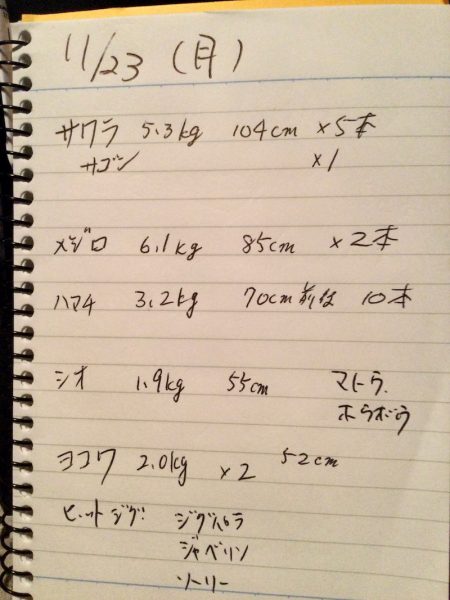 11/23 (月)
サワラ 5.3kg 104cm ×5本
サゴシ ×1
メジロ 6.1kg 85cm ×2本
ハマチ 3.2kg 70cm前後 10本
シオ 1.9kg 55cm マトウ.
ホウボウ
ヨコワ 2.0kg ×2 52cm
ヒットジグ! ジグパラ
ジャベリン
ソーリー